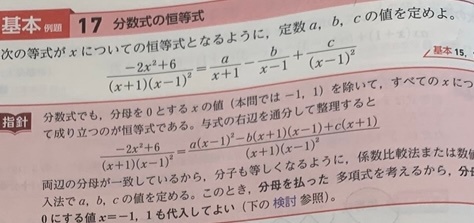 基本 例題 17 分数式の恒等式
次の等式が x についての恒等式となるように,定数 a,b,c の値を定めよ。
\frac{-2x²+6}{(x+1)(x-1)²} = \frac{a}{x+1} - \frac{b}{x-1} + \frac{c}{(x-1)²}
基本 15,
指針 分数式でも,分母を 0 とする x の値(本問では -1, 1)を除いて,すべての x につ
て成り立つのが恒等式である。与式の右辺を通分して整理すると
\frac{-2x²+6}{(x+1)(x-1)²} = \frac{a(x-1)²-b(x+1)(x-1)+c(x+1)}{(x+1)(x-1)²}
両辺の分母が一致しているから,分子も等しくなるように,係数比較法または数値
入法で a,b,c の値を定める。このとき,分母を払った 多項式を考えるから,分
0 にする値 x=-1, 1 も代入してよい(下の 検討 参照)。